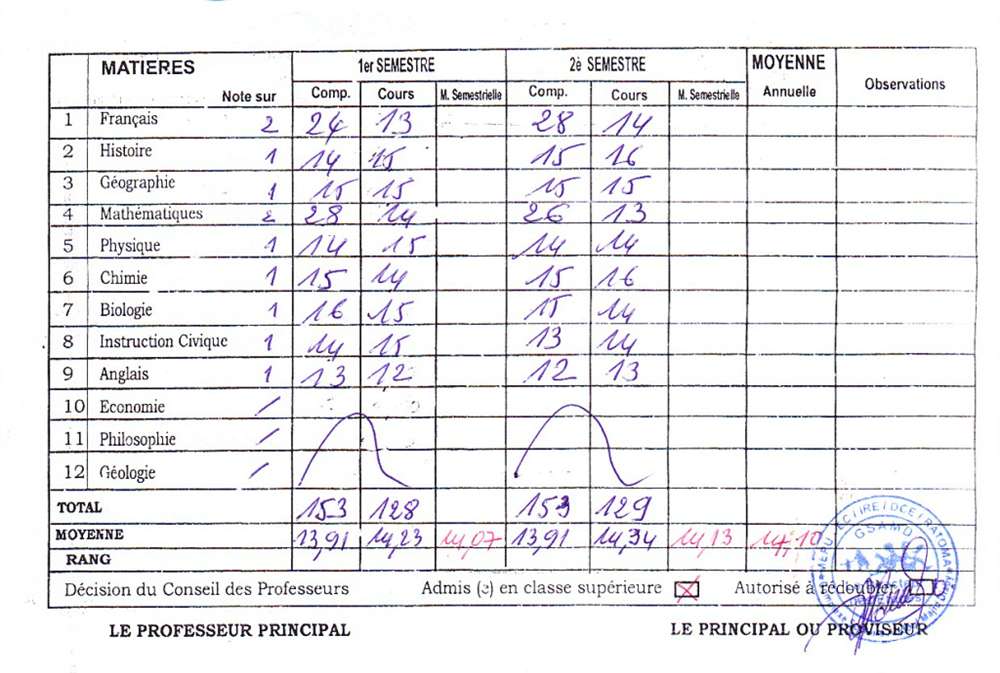 MATIERES 1er SEMESTRE 2è SEMESTRE MOYENNE Observations
Note sur Comp. Cours M. Semestrielle Comp. Cours M. Semestrielle Annuelle
1 Français 2 24 13 28 14
2 Histoire 1 14 15 15 16
3 Géographie 1 15 15 15 15
4 Mathématiques 2 28 14 26 13
5 Physique 1 14 15 14 14
6 Chimie 1 15 14 15 16
7 Biologie 1 16 15 15 14
8 Instruction Civique 1 14 15 13 14
9 Anglais 1 13 12 12 13
10 Economie /
11 Philosophie /
12 Géologie /
TOTAL 153 128 153 129
MOYENNE 13,91 14,23 14,07 13,91 14,34 14,13 14,10
RANG
Décision du Conseil des Professeurs Admis (e) en classe supérieure Autorisé à redoubler
LE PROFESSEUR PRINCIPAL LE PRINCIPAL OU PROVISEUR
GSAMD